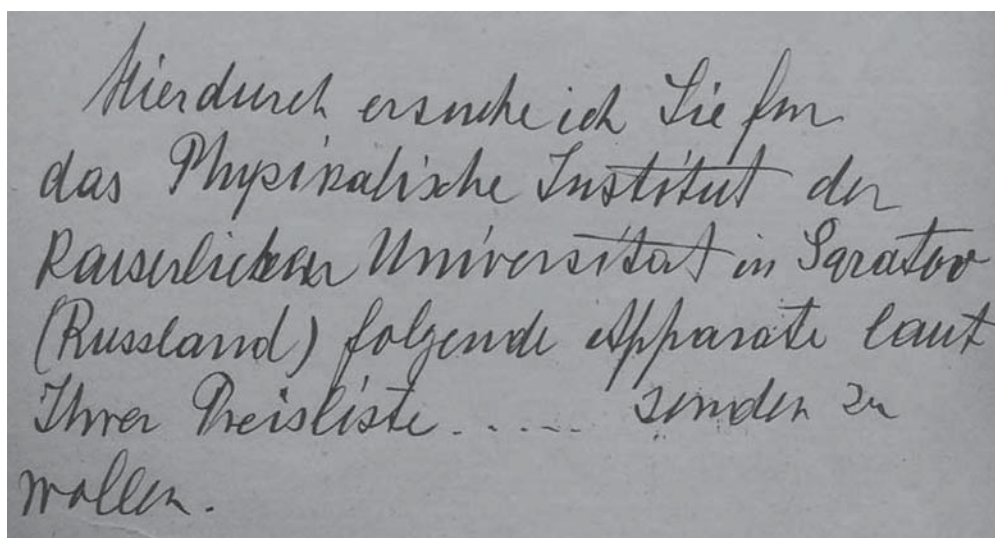 Hierdurch ersuche ich Sie fur
das Physikalische Institut der
Kaiserlichen Universitat in Saratow
(Russland) folgende Apparate laut
Ihrer Preisliste...... senden zu
wollen.